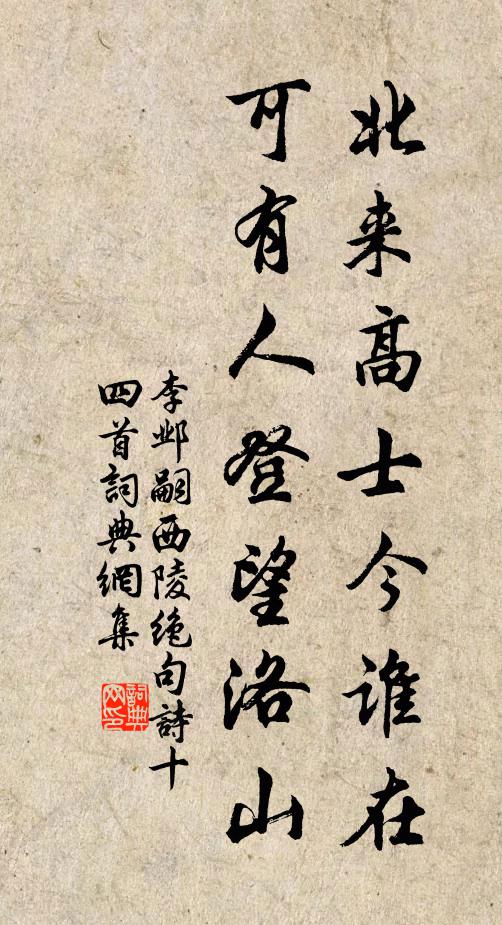 北来高士今谁在
可有人登望洛山
李邺嗣西陵絶句詩十
四首詞典網集
詞典
网印